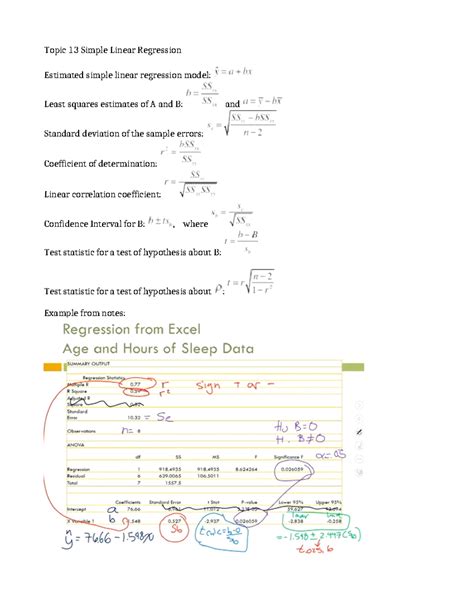 Topic 13 Simple Linear Regression
Estimated simple linear regression model: ŷ = a + bx
Least squares estimates of A and B: b = SSxy / SSxx and a = ȳ − bx̄
Standard deviation of the sample errors: se = √((SSyy − bSSxy) / (n − 2))
Coefficient of determination: r² = bSSxy / SSyy
Linear correlation coefficient: r = SSxy / √(SSxx SSyy)
Confidence Interval for B: b ± tsb, where sb = se / √SSxx
Test statistic for a test of hypothesis about B: t = (b − B) / sb
Test statistic for a test of hypothesis about ρ: t = r√((n − 2) / (1 − r²))
Example from notes:
Regression from Excel
Age and Hours of Sleep Data
SUMMARY OUTPUT
Regression Statistics
Multiple R 0.77 r sign + or -
R Square r²
Adjusted R
Square
Standard
Error 10.32 = Se
Observations n= 8
H₀ B=0
H₁ B≠0
ANOVA
α=.05
df SS MS F Significance F
Regression 1 918.4935 918.4935 8.624264 0.026059
Residual 6 639.0065 106.5011
Total 7 1557.5
Coefficients Standard Error t Stat P-value Lower 95% Upper 95%
Intercept a 76.66
X Variable 1 b -1.548 0.527 -2.937 0.026059 -2.838 -0.258
Sb